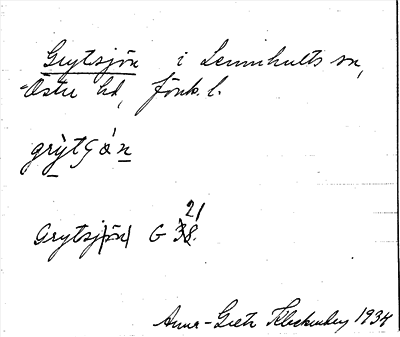 Grytsjön i Lemnhults sn,
Östre hd, Jönk. l.
grỳtʃȯ́n
Grytsj(ön) G 38. 21
Anna-Greta 1934